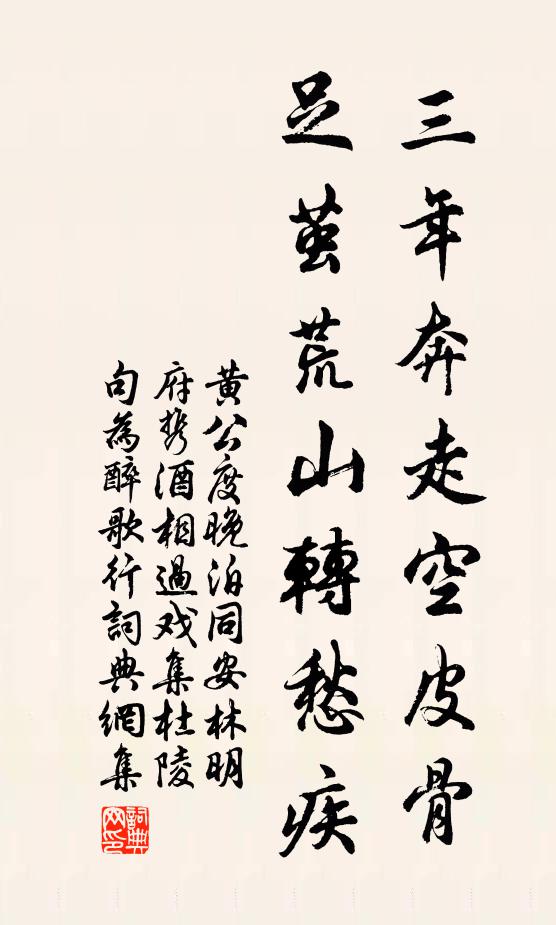 三年奔走空皮骨
足茧荒山轉愁疾
黄公度晚泊同安林明
府携酒相過戏集杜陵
句為醉歌行詞典網集
詞典
网印